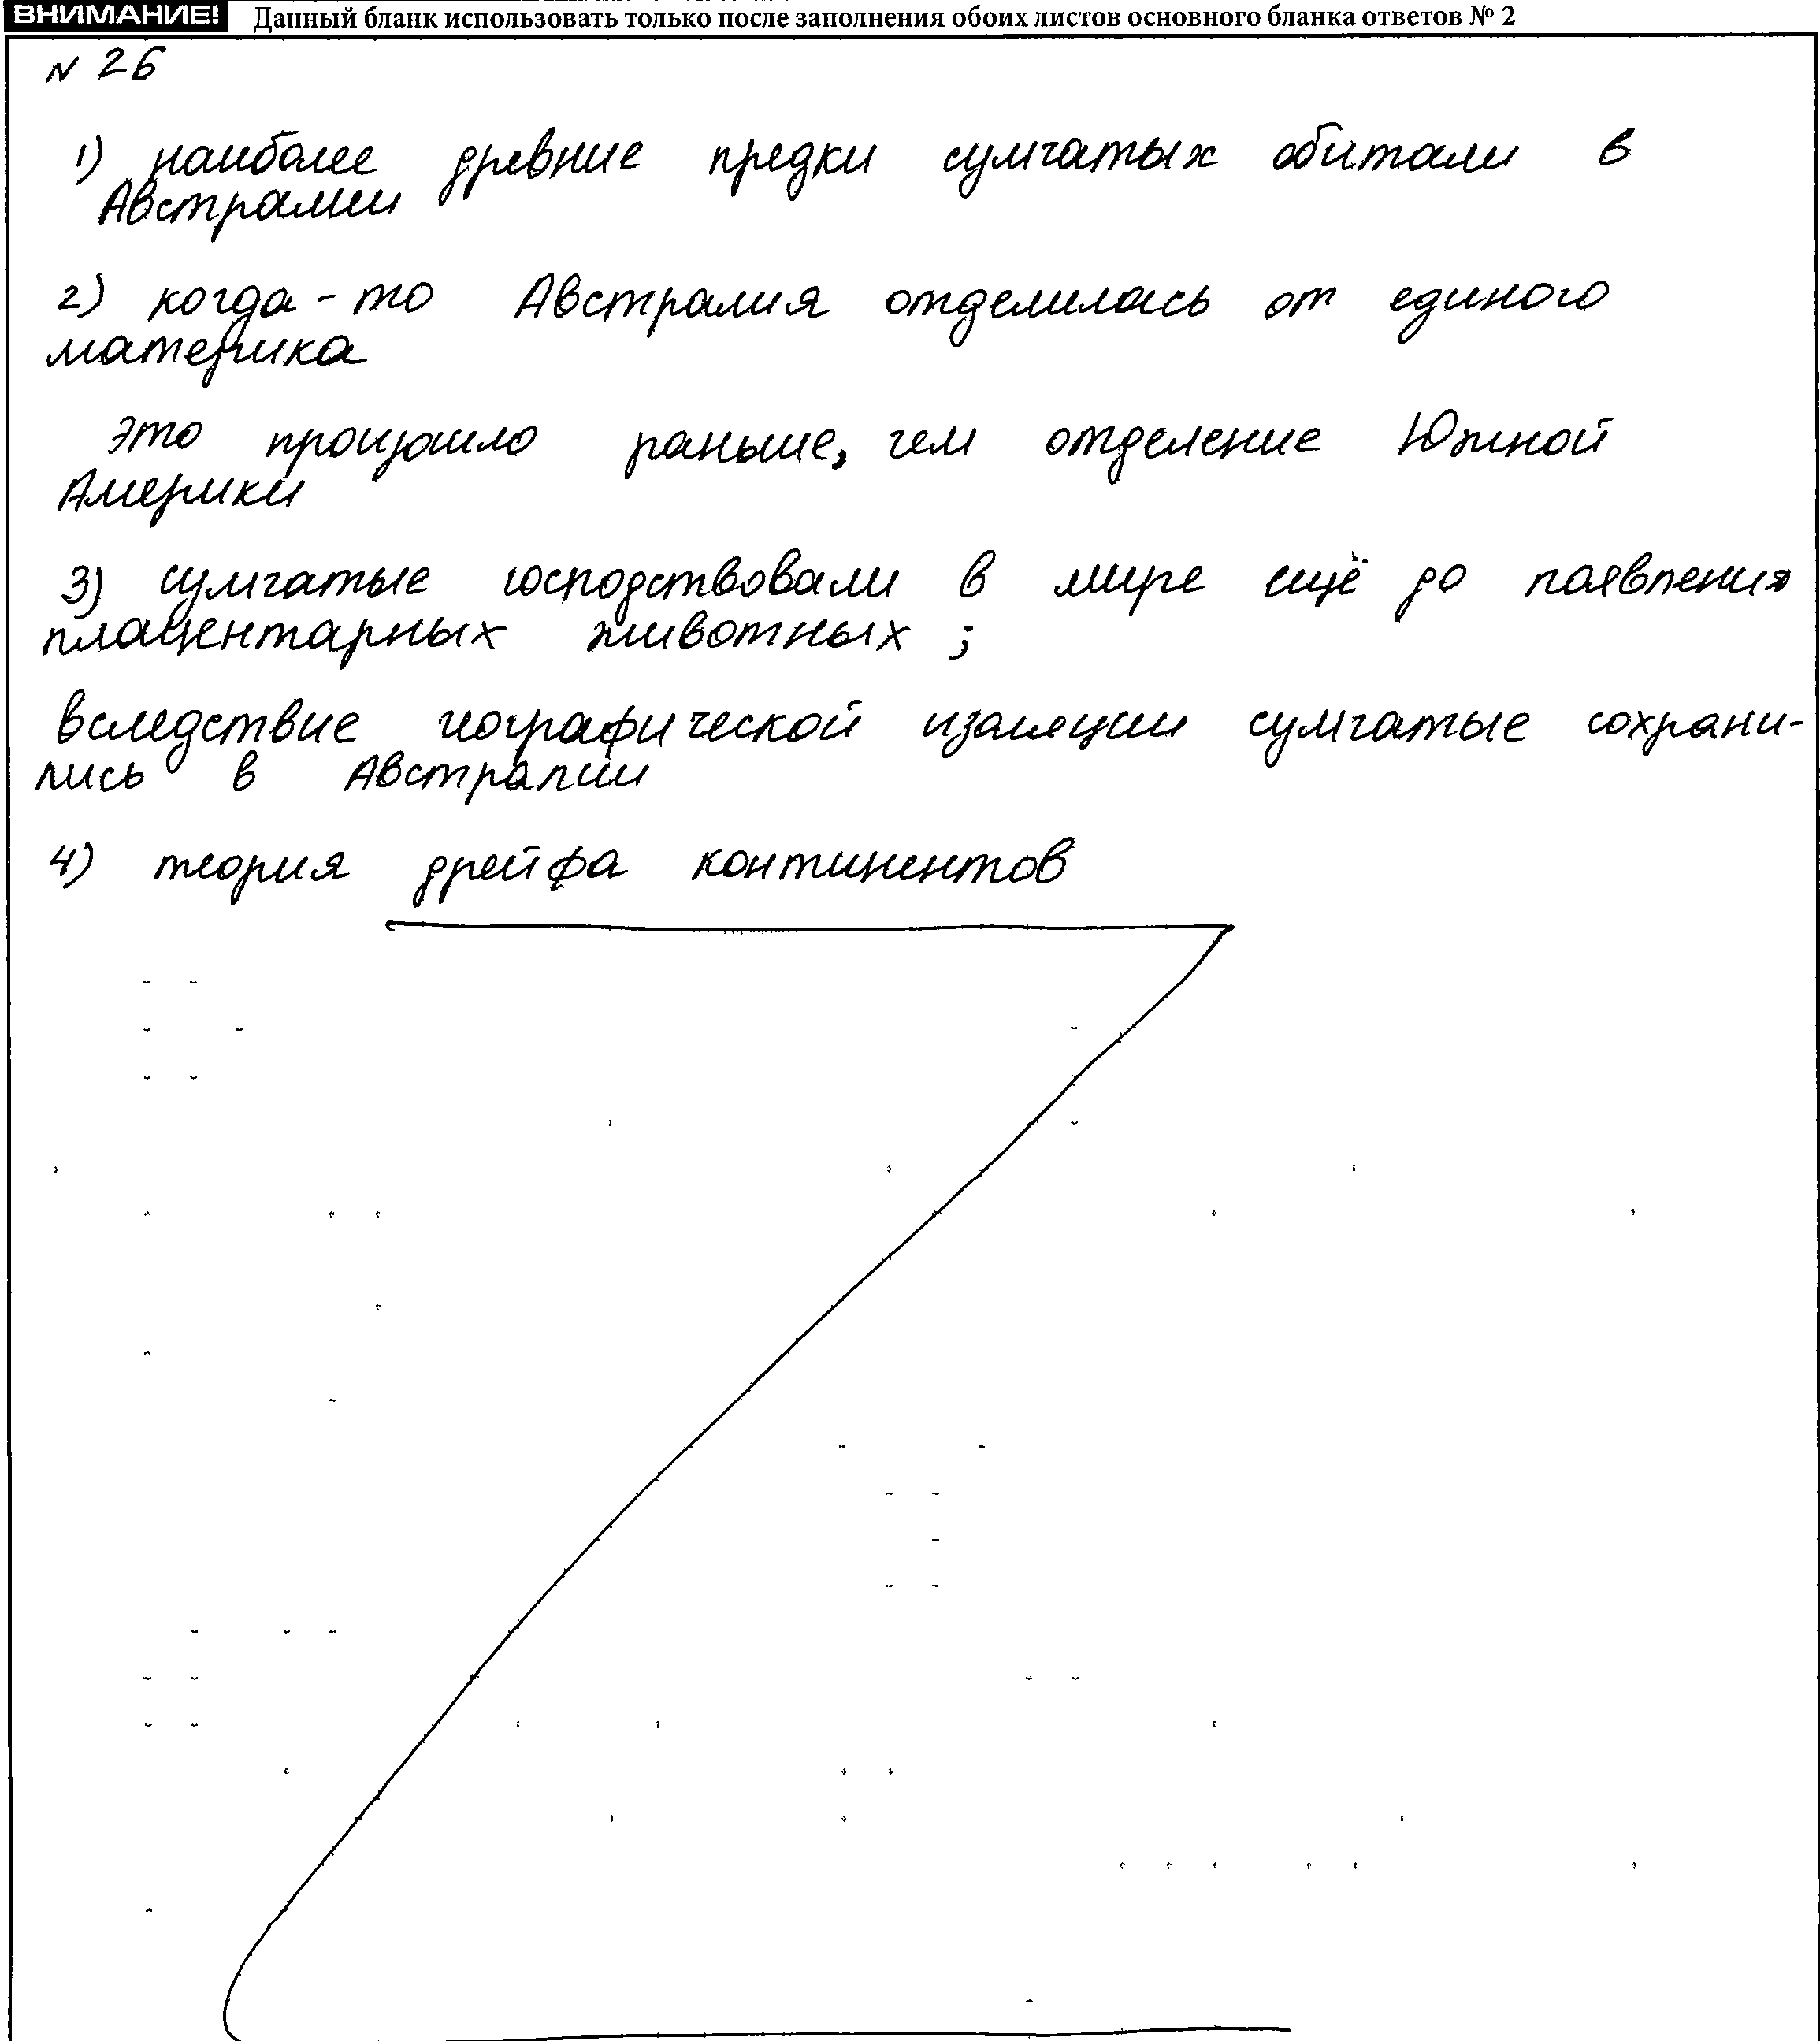 ВНИМАНИЕ! Данный бланк использовать только после заполнения обоих листов основного бланка ответов № 2
N 26
1) наиболее древние предки сумчатых обитали в
Австралии
2) когда-то Австралия отделилась от единого
материка
это произошло раньше, чем отделение Южной
Америки
3) сумчатые господствовали в мире ещё до появления
плацентарных животных ;
вследствие географической изоляции сумчатые сохрани-
лись в Австралии
4) теория дрейфа континентов